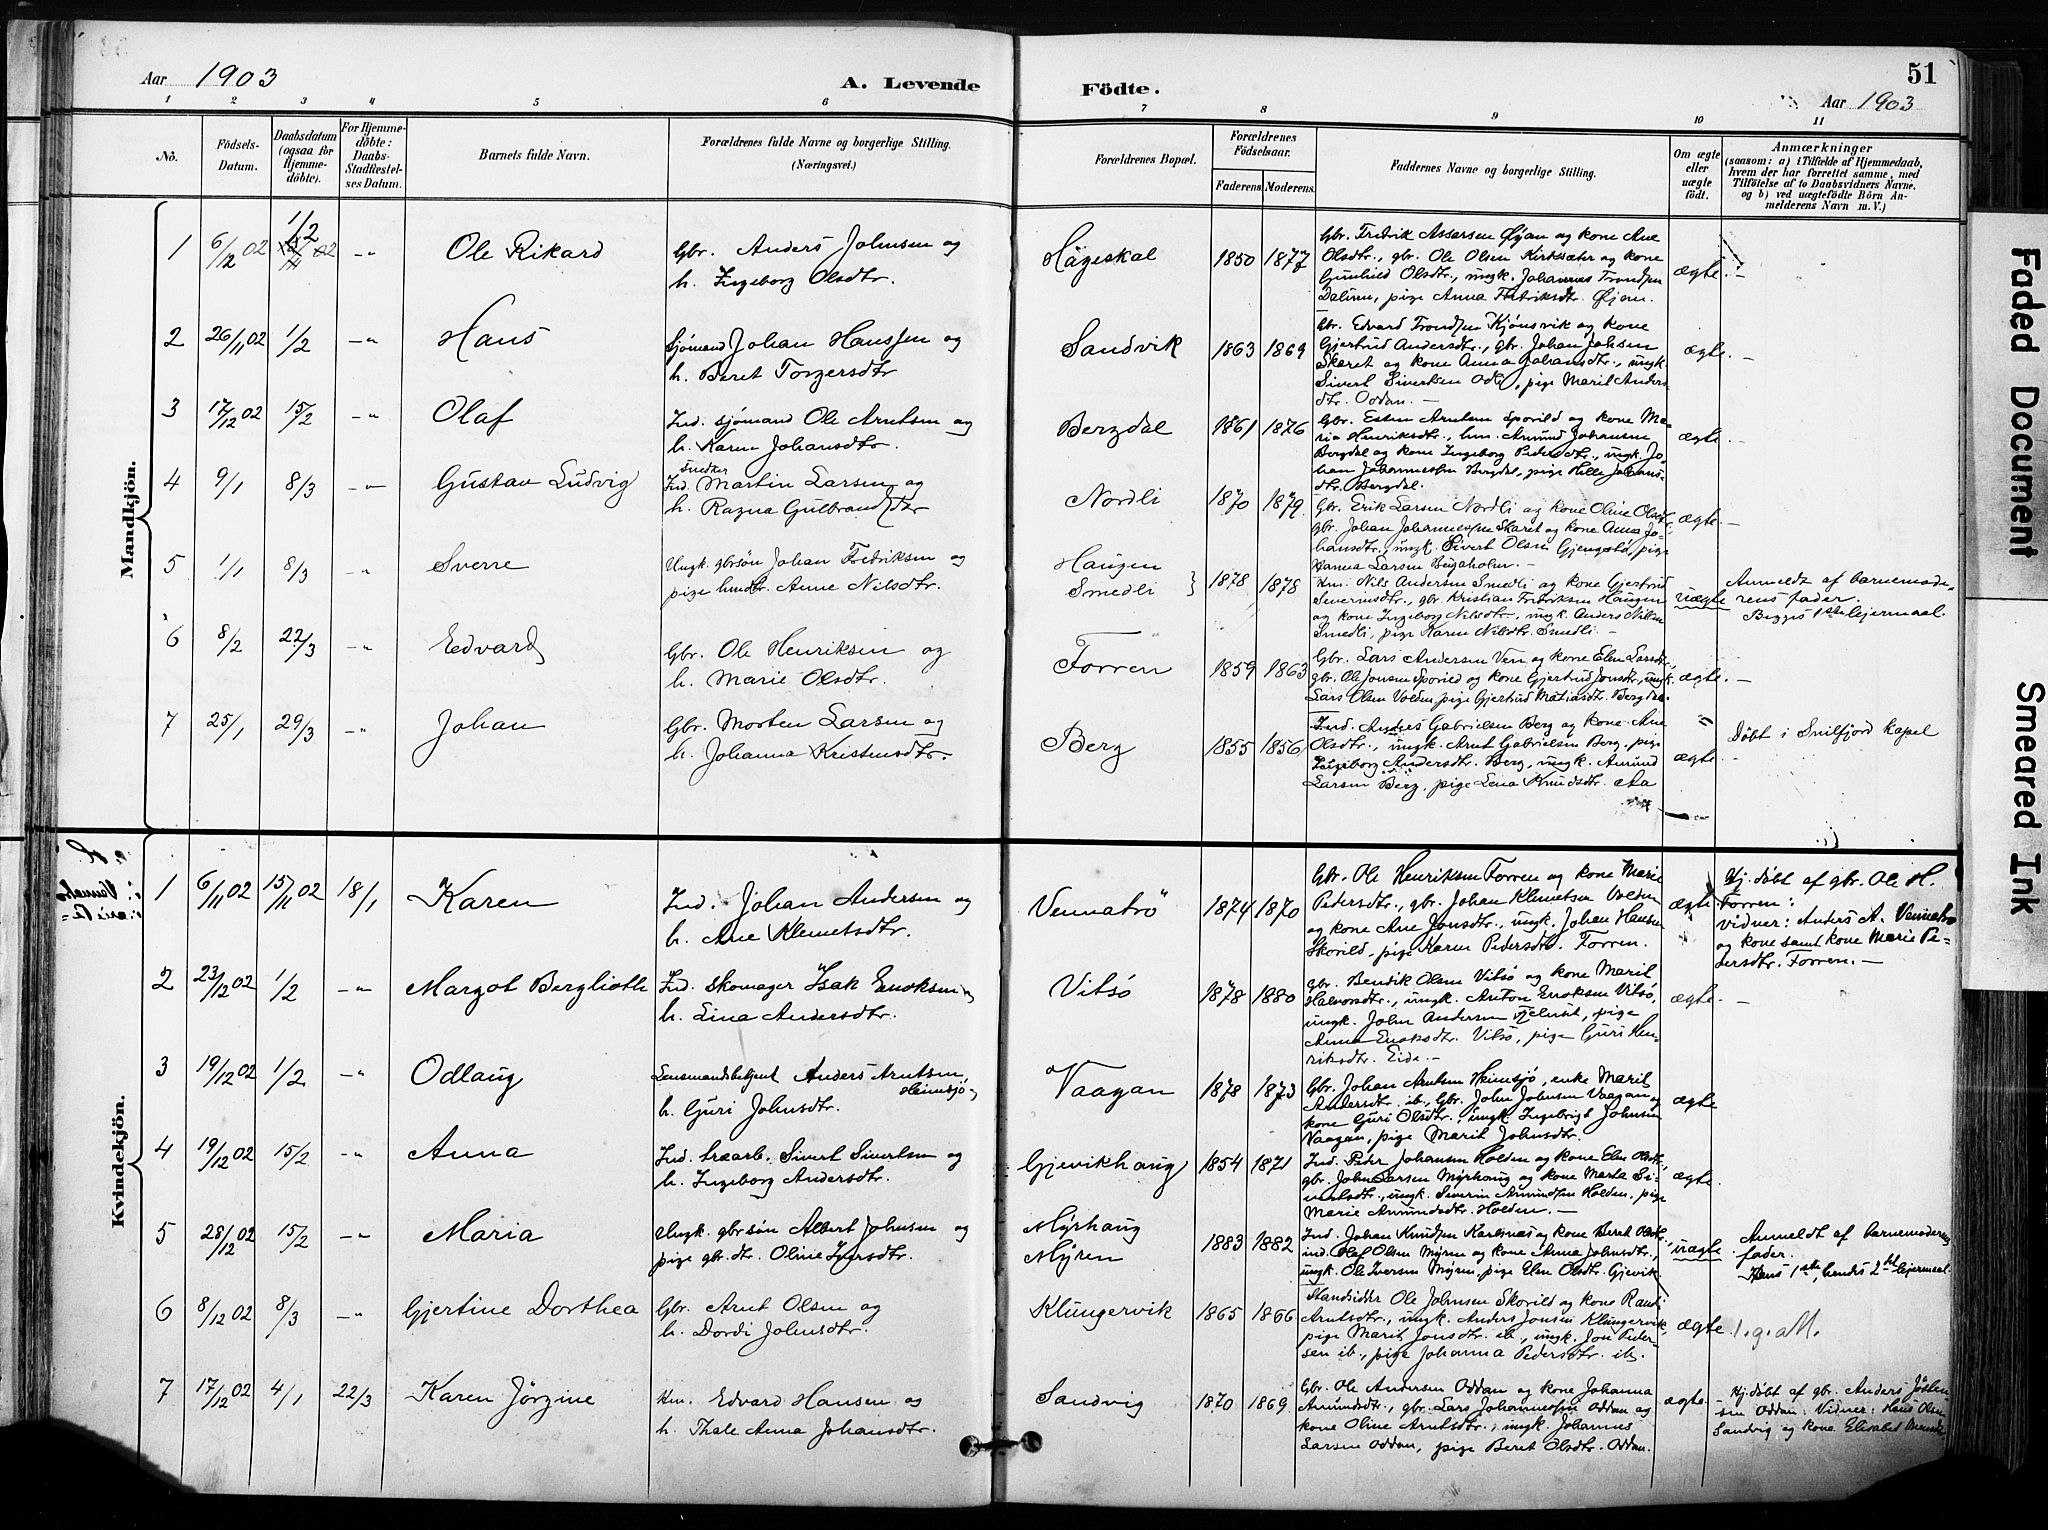 Aar 1903
A. Levende
Födte.
51
Aar 1903
1 2 3 4 5 6 7 8 9 10 11
No.
Födsels-
Datum.
Daabsdatum
(ogsaa for
Hjemme-
döbte).
For Hjemme-
döbte:
Daabs-
Stadfæstel-
ses Datum.
Barnets fulde Navn.
Forældrenes fulde Navne og borgerlige Stilling.
(Næringsvei.)
Forældrenes Bopæl.
Forældrenes
Födselsaar.
Faderens.
Moderens.
Faddernes Navne og borgerlige Stilling.
Om ægte
eller
uægte
födt.
Anmærkninger
(saasom: a) i Tilfælde af Hjemmedaab,
hvem der har forrettet samme, med
Tilföielse af to Daabsvidners Navne,
og b) ved uægtefödte Börn An-
melderens Navn m. V.)
Mandkjön.
1 6/12 02 1/2 -"- Ole Rikard
Gbr. Anders Johnsen og
h. Ingeborg Olsdtr.
Hägeskal 1850 1877
Gbr. Fredrik Assersen Øyan og kone Ane
Olsdtr., gbr. Ole Olsen Kirksæter og kone
Gunhild Olsdtr., ungk. Johannes Trondsen
Dalum, pige Anna Fredriksdtr. Øyan.
ægte. -
2 26/11 02 1/2 -"- Hans
Sjømand Johan Hanssen og
h. Beret Torgersdtr
Sandvik 1863 1869
Gbr. Edvard Trondsen Kjønsvik og kone
Gjertrud Andersdtr., gbr. Johan Johsen
Skaret og kone Anna Johansdtr., ungk.
Sivert Sivertsen Odd, pige Marit Anders
dtr. Oddan. -
ægte. -
3 17/12 02 15/2 -"- Olaf
Ind. sjømand Ole Arntsen og
h. Karen Johansdtr.
Bergdal 1861 1876
Gbr. Esten Arntsen Sporild og kone Ma-
ria Henriksdtr., hm. Amund Johansen
Bergdal og kone Ingeborg Pedersdtr., ungk. Jo-
han Johannessen Bergdal, pige Helle Johans-
dtr. Bergdal.
ægte. -
4 9/1 8/3 -"- Gustav Ludvig
Ind. Snedker Martin Larsen og
h. Ragna Gulbrandsdtr
Nordli 1870 1879
Gbr. Erik Larsen Nordli og kone Oline Olsdtr,
gbr. Johan Johannessen Skaret og kone Anna Jo-
hansdtr., ungk. Sivert Olsen Gjengstø, pige
Hanna Larsen
ægte. -
5 1/1 8/3 -"- Sverre
Ungk. gbrsøn Johan Fredriksen og
pige hmdtr. Anne Nilsdtr.
Haugen
Smedli } 1878 1878
Hm. Nils Andersen Smedli og kone Gjertrud
Severinsdtr., gbr. Kristian Fredriksen Haugen
og kone Ingeborg Nilsdtr., ungk. Anders Nilsen
Smedli, pige Karen Nilsdtr. Smedli -
uægte
Anmeldt af barnemode-
rens fader.
Begges 1ste lejermaal.
6 8/2 22/3 -"- Edvard
Gbr. Ole Henriksen og
h. Marie Olsdtr.
Forren 1859 1863
Gbr. Lars Andersen Ven og kone Elen Larsdtr,
gbr. Ole Jonsen Sporild og kone Gjertrud Jonsdtr., ungk.
Lars Olsen Volden, pige Gjertrud Matiasdtr. Bergdal.
ægte. -
7 25/1 29/3 -"- Johan
Gbr. Morten Larsen og
h. Johanna Kristensdtr.
Berg 1855 1856
Ind. Anders Gabrielsen Berg og kone Ane
Olsdtr., ungk. Arnt Gabrielsen Berg, pige
Ingeborg Andersdtr. Berg, ungk. Amund
Larsen Berg, pige Lena Knudsdtr. Aa
ægte. -
Døbt i Snilfjord kapel
Kvindekjön.
1 6/11 02 15/11 02 18/1 Karen
Ind. Johan Andersen og
h. Ane Klemetsdtr.
Vennatrö 1874 1870
Gbr. Ole Henriksen Forren og kone Marie
Pedersdtr., gbr. Johan Klemetsen Volden
og kone Ane Jonsdtr., ungk. Johan Hansen
Skorild, pige Karen Pedersdtr. Forren.
ægte.
Hj. døbt af gbr. Ole H.
Forren:
vidner: Anders A. Vennatrø
og kone samt kone Marie Pe-
dersdtr. Forren. -
2 23/12 02 1/2 -"- Margot Berglioth
Ind. skomager Isak Enoksen og
h. Lina Andersdtr.
Vitsö 1878 1880
gbr. Bendik Olsen Vitsö og kone Marit
Halvorsdtr., ungk. Anton Enoksen Vitsö,
ungk. John Andersen, pige
Anna Enoksdtr. Vitsö, pige Guri Hen-
riksdtr. Eide. -
ægte. -
3 19/12 02 1/2 -"- Odlaug
Lensmandsbetjent Anders Arntsen
Heimsjö og
h. Guri Johnsdtr.
Vaagan 1878 1873
Gbr. Johan Arntsen Heimsjø, enke Marit
Andersdtr. ib., Gbr. John Johnsen Vaagan og
kone Guri Olsdtr., ungk. Ingebrigt Johnsen
Vaagan, pige Marit Johnsdtr.
ægte
4 19/12 02 15/2 -"- Anna
Ind. træarb. Sivert Sivertsen og
h. Ingeborg Andersdtr.
Gjevikhaug 1854 1871
Ind. Peder Johansen Holden og kone Elen Olsdtr.,
gbr. John Larsen Myrhaug og kone Marta Si-
vertsdtr., ungk. Severin Amundsen Holden, pige
Marie Amundsdtr. Holden. -
ægte.
5 28/12 02 15/2 -"- Maria
Ungk. gbrsøn Albert Johnsen og
pige gbr.dtr. Oline Iversdtr.
Myrhaug
Myren 1883 1882
Ind. Johan Knudsen Karlsnæs og kone Beret Olsdtr.,
ind. Olaf Olsen Myren og kone Anna Johnsdtr.,
ungk. Ole Iversen Myren, pige Elen Olsdtr. Gjevik.
uægte
Anmeldt af barnemoderens
fader.
Hans 1ste, hendes 2det lejermaal.
6 8/12 02 8/3 -"- Gjertine Dorthea
Gbr. Arnt Olsen og
h. Dordi Johnsdtr.
Klungervik 1865 1866
Strandsidder Ole Johnsen Skorild og kone Randi
Arntsdtr., ungk. Anders Jonsen Klungervik,
pige Marit Jonsdtr. ib., ungk. Jon Peder-
sen ib., pige Johanna Pedersdtr. ib.
ægte.
7 17/12 02 4/1 22/3 Karen Jörgine
Hm. Edvard Hansen og
h. Thale Anna Johansdtr.
Sandvig 1870 1869
Gbr. Ole Andersen Oddan og kone Johanna
Amundsdtr., gbr. Lars Johannessen Oddan og
kone Oline Arntsdtr., ungk. Johannes
Larsen Oddan, pige Beret Olsdtr. Oddan.
ægte.
Hj. døbt af gbr. Anders Jösten-
sen Oddan. Vidner: Hans Olsen
Sandvig og kone Elisabet
Faded Document
Smeared Ink